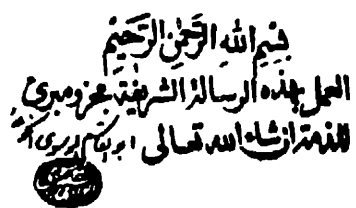 بسم الله الرحمن الرحيم
العمل بهذه الرسالة الشريفة مجز ومبرئ
للذمة ان شاء الله تعالى ابو القاسم الموسوي الخوئي